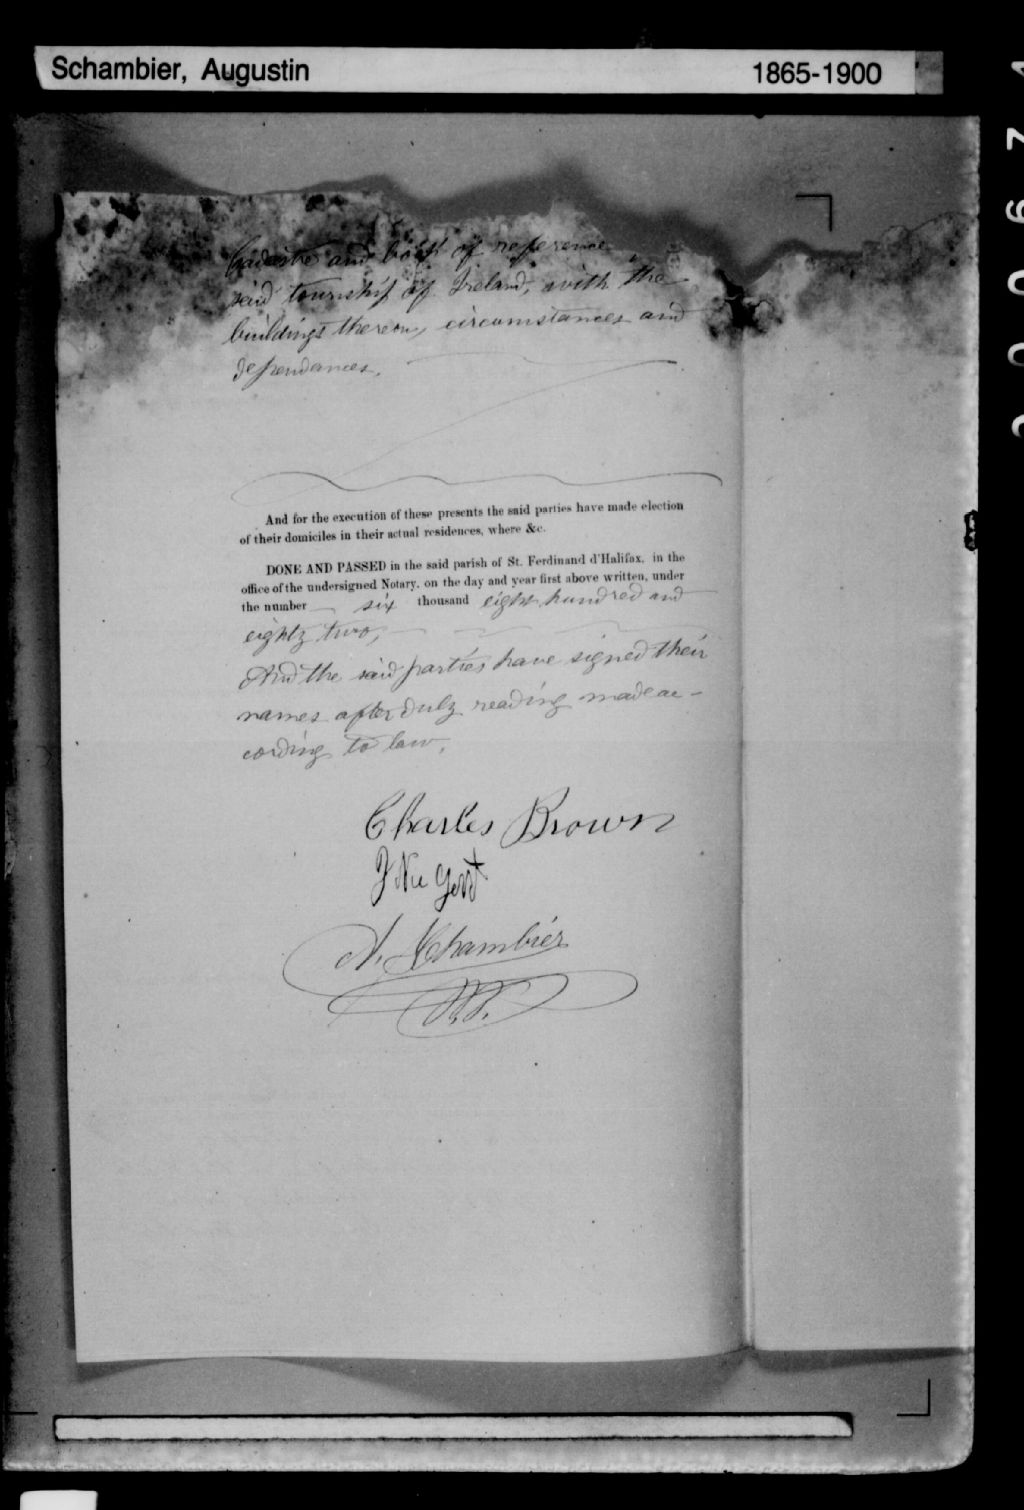 Schambier, Augustin 1865-1900
Cadastre and book of reference
said township of Ireland, with the
buildings thereon, circumstances and
dependances.
And for the execution of these presents the said parties have made election
of their domiciles in their actual residences, where &c.
DONE AND PASSED in the said parish of St. Ferdinand d'Halifax, in the
office of the undersigned Notary, on the day and year first above written, under
the number six thousand eight hundred and
eighty two,
And the said parties have signed their
names after duly reading made ac-
cording to law.
Charles Brown
J Nugent
A. Schambier
N.P.